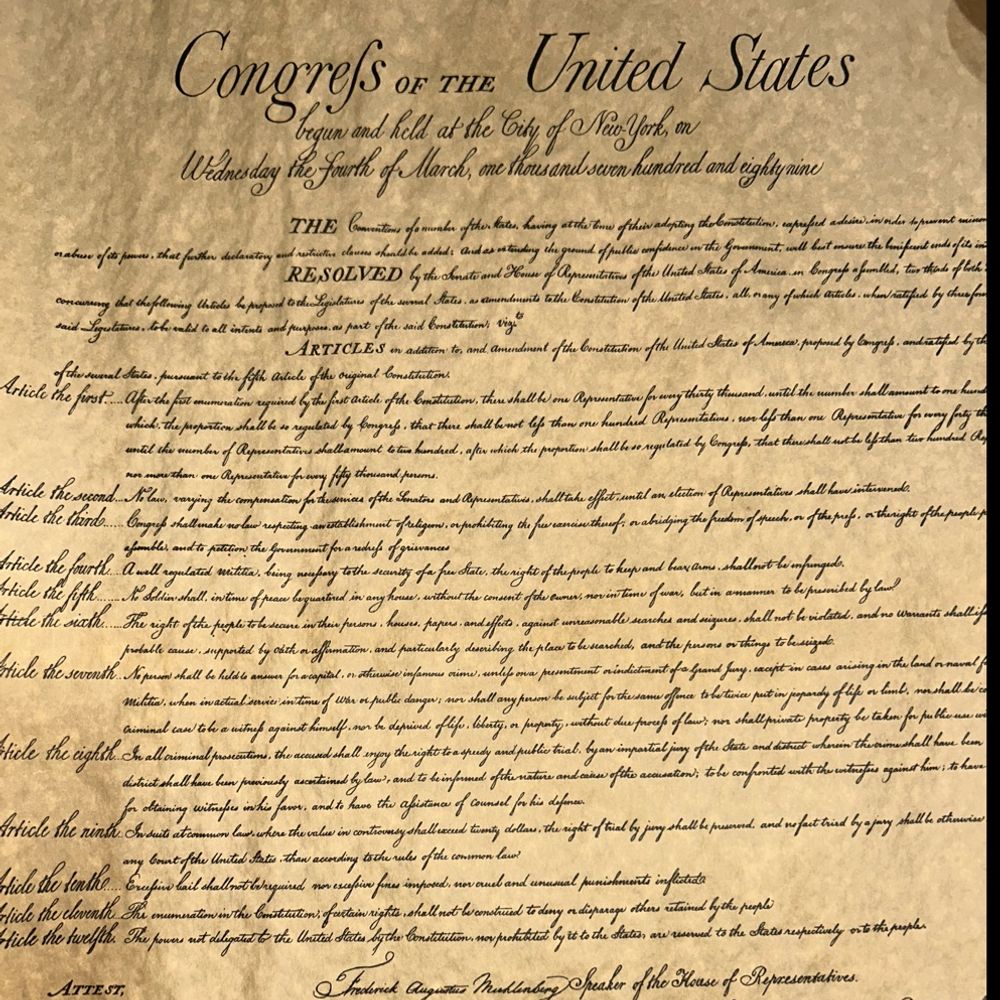 Congreſs OF THE United States
begun and held at the City of New-York, on
Wednesday the fourth of March, one thousand seven hundred and eighty nine
THE Conventions of a number of the States, having at the time of their adopting the Constitution, expressed a desire, in order to prevent
or abuse of its powers, that further declaratory and restrictive clauses should be added: And as extending the ground of public confidence in the Government, will best ensure the beneficent ends of its
RESOLVED by the Senate and House of Representatives of the United States of America, in Congreſs aſsembled, two thirds of both
concurring that the following Articles be proposed to the Legislatures of the several States, as amendments to the Constitution of the United States, all, or any of which Articles, when ratified by three
said Legislatures, to be valid to all intents and purposes, as part of the said Constitution; vizt
ARTICLES in addition to, and Amendment of the Constitution of the United States of America, proposed by Congreſs, and ratified by the
of the several States, pursuant to the fifth Article of the original Constitution.
Article the first.... After the first enumeration required by the first Article of the Constitution, there shall be one Representative for every thirty thousand, until the number shall amount to one
which, the proportion shall be so regulated by Congreſs, that there shall be not leſs than one hundred Representatives, nor leſs than one Representative for every forty
until the number of Representatives shall amount to two hundred, after which the proportion shall be so regulated by Congreſs, that there shall not be leſs than two hundred
nor more than one Representative for every fifty thousand persons.
Article the second... No law, varying the compensation for the services of the Senators and Representatives, shall take effect, until an election of Representatives shall have intervened.
Article the third..... Congreſs shall make no law respecting an establishment of religion, or prohibiting the free exercise thereof; or abridging the freedom of speech, or of the preſs, or the right of the people
aſsemble, and to petition the Government for a redreſs of grievances
Article the fourth... A well regulated Militia, being neceſsary to the security of a free State, the right of the people to keep and bear Arms, shall not be infringed.
Article the fifth..... No Soldier shall, in time of peace be quartered in any house, without the consent of the owner, nor in time of war, but in a manner to be prescribed by law.
Article the sixth..... The right of the people to be secure in their persons, houses, papers, and effects, against unreasonable searches and seizures, shall not be violated, and no warrants shall
probable cause, supported by oath or affirmation, and particularly describing the place to be searched, and the persons or things to be seized.
Article the seventh.. No person shall be held to answer for a capital, or otherwise infamous crime, unleſs on a presentment or indictment of a Grand Jury, except in cases arising in the land or naval
Militia, when in actual service in time of War or public danger; nor shall any person be subject for the same offence to be twice put in jeopardy of life or limb, nor shall be
criminal case to be a witneſs against himself, nor be deprived of life, liberty, or property, without due proceſs of law; nor shall private property be taken for public use
Article the eighth... In all criminal prosecutions, the accused shall enjoy the right to a speedy and public trial, by an impartial jury of the State and district wherein the crime shall have been
district shall have been previously ascertained by law, and to be informed of the nature and cause of the accusation; to be confronted with the witneſses against him; to have
for obtaining witneſses in his favor, and to have the aſsistance of counsel for his defence.
Article the ninth... In suits at common law, where the value in controversy shall exceed twenty dollars, the right of trial by jury shall be preserved, and no fact tried by a jury shall be otherwise
any Court of the United States, than according to the rules of the common law.
Article the tenth.... Exceſsive bail shall not be required nor exceſsive fines imposed, nor cruel and unusual punishments inflicted.
Article the eleventh.. The enumeration in the Constitution, of certain rights, shall not be construed to deny or disparage others retained by the people
Article the twelfth.. The powers not delegated to the United States by the Constitution, nor prohibited by it to the States, are reserved to the States respectively or to the people.
ATTEST,
Frederick Augustus Muhlenberg Speaker of the House of Representatives.